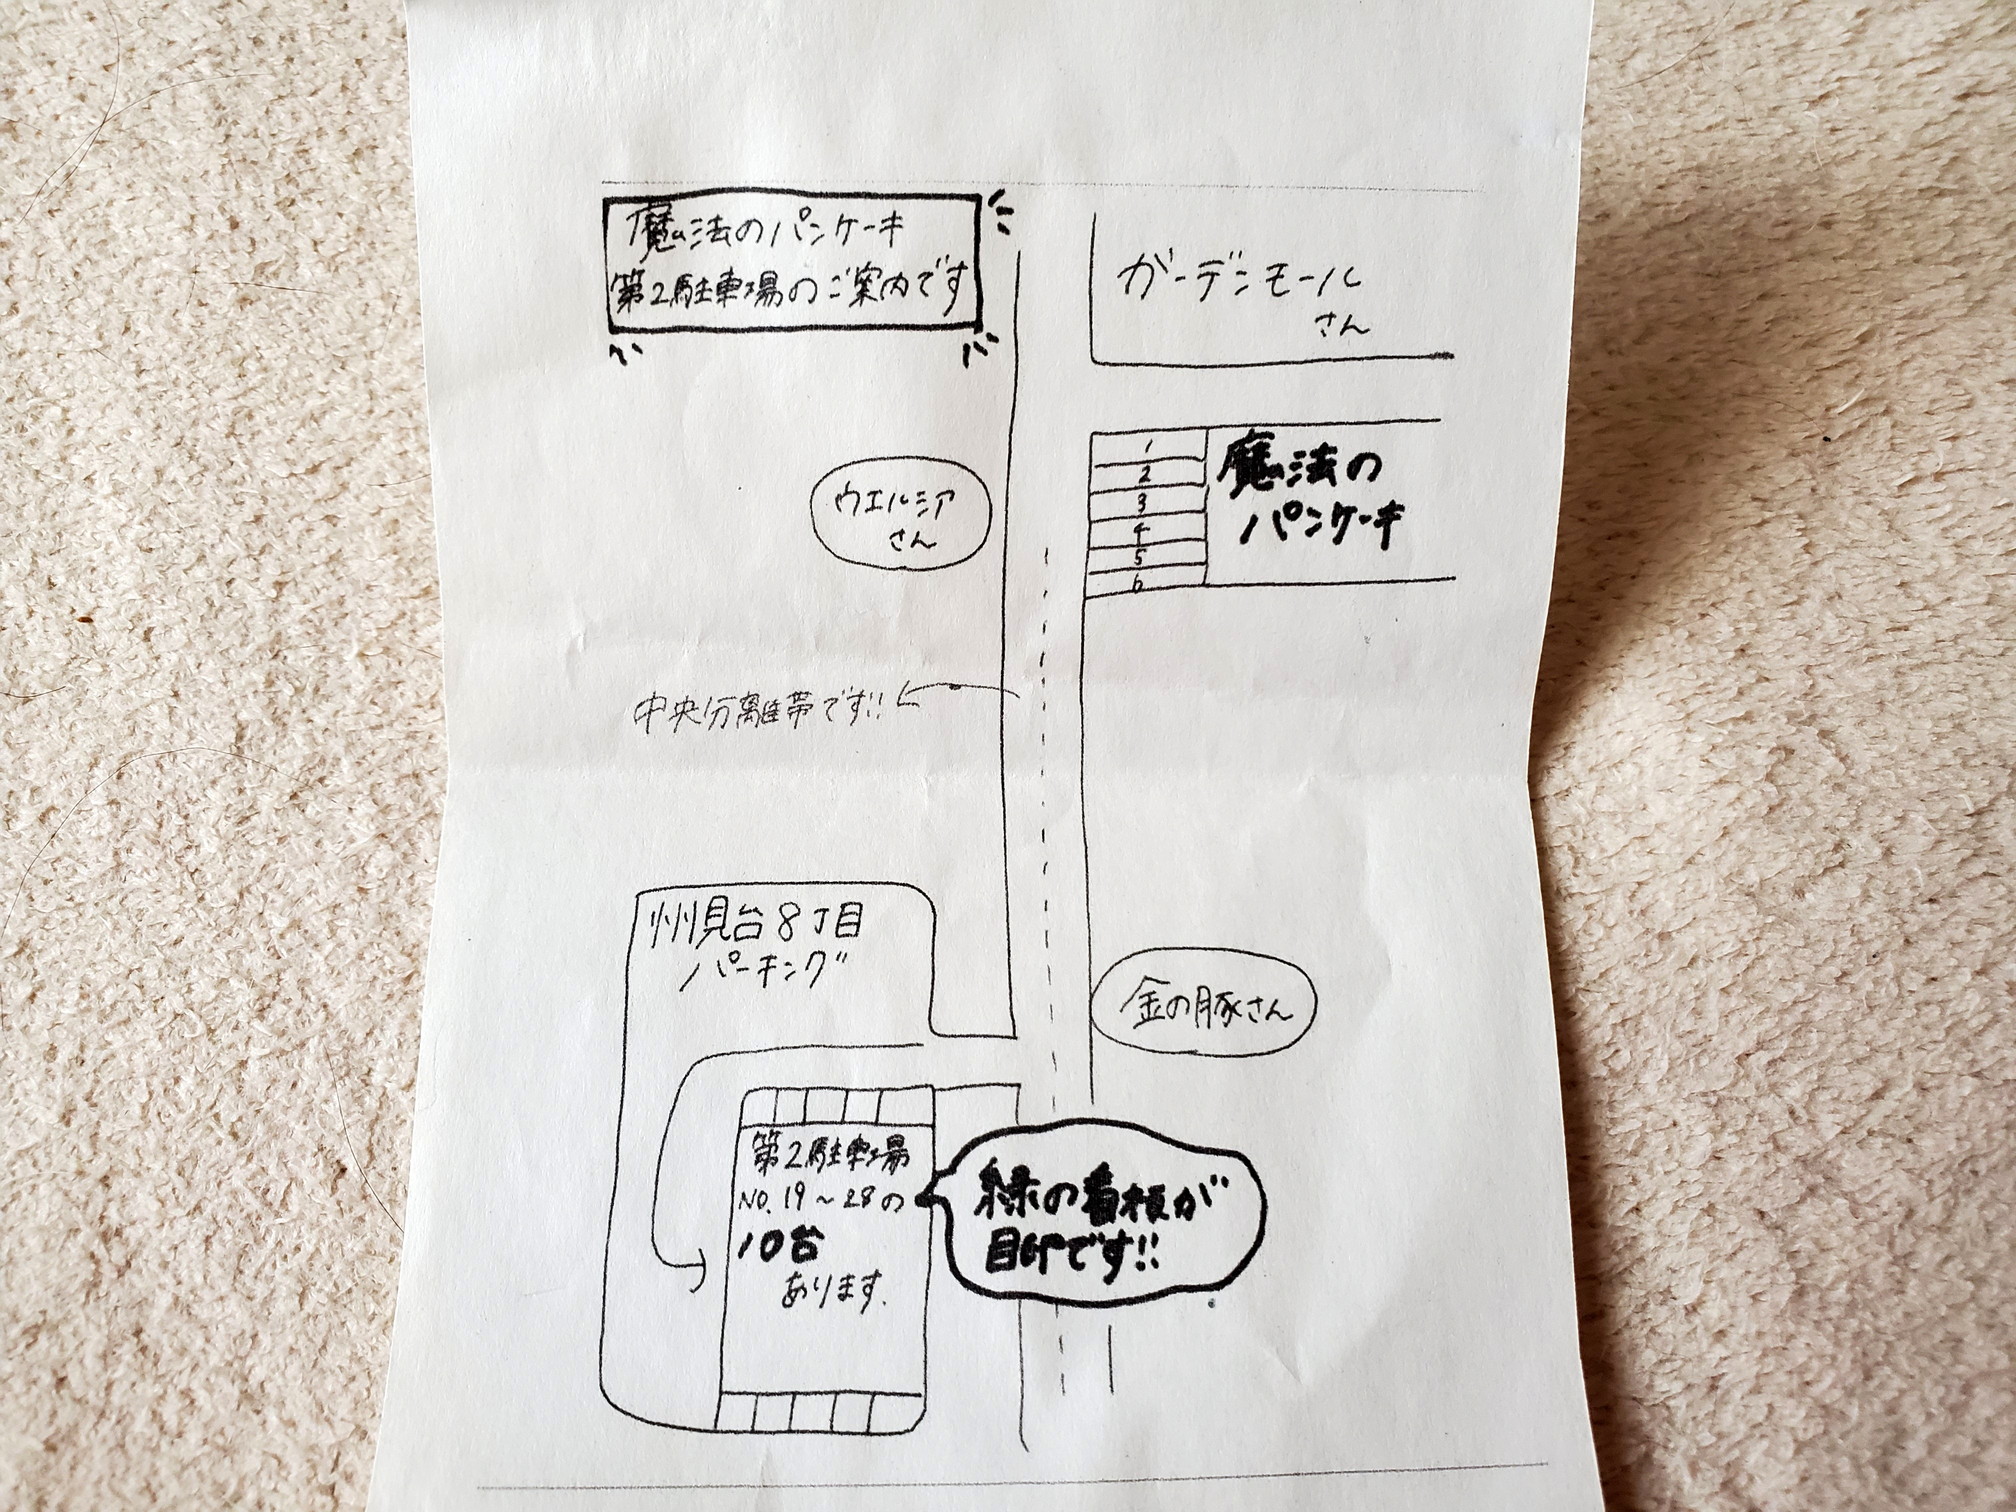 魔法のパンケーキ
第2駐車場のご案内です
ガーデンモール
さん
1
2
3
4
5
6
魔法の
パンケーキ
ウエルシア
さん
中央分離帯です!!
州見台8丁目
パーキング
金の豚さん
第2駐車場
NO.19～28の
10台
あります.
緑の看板が
目印です!!